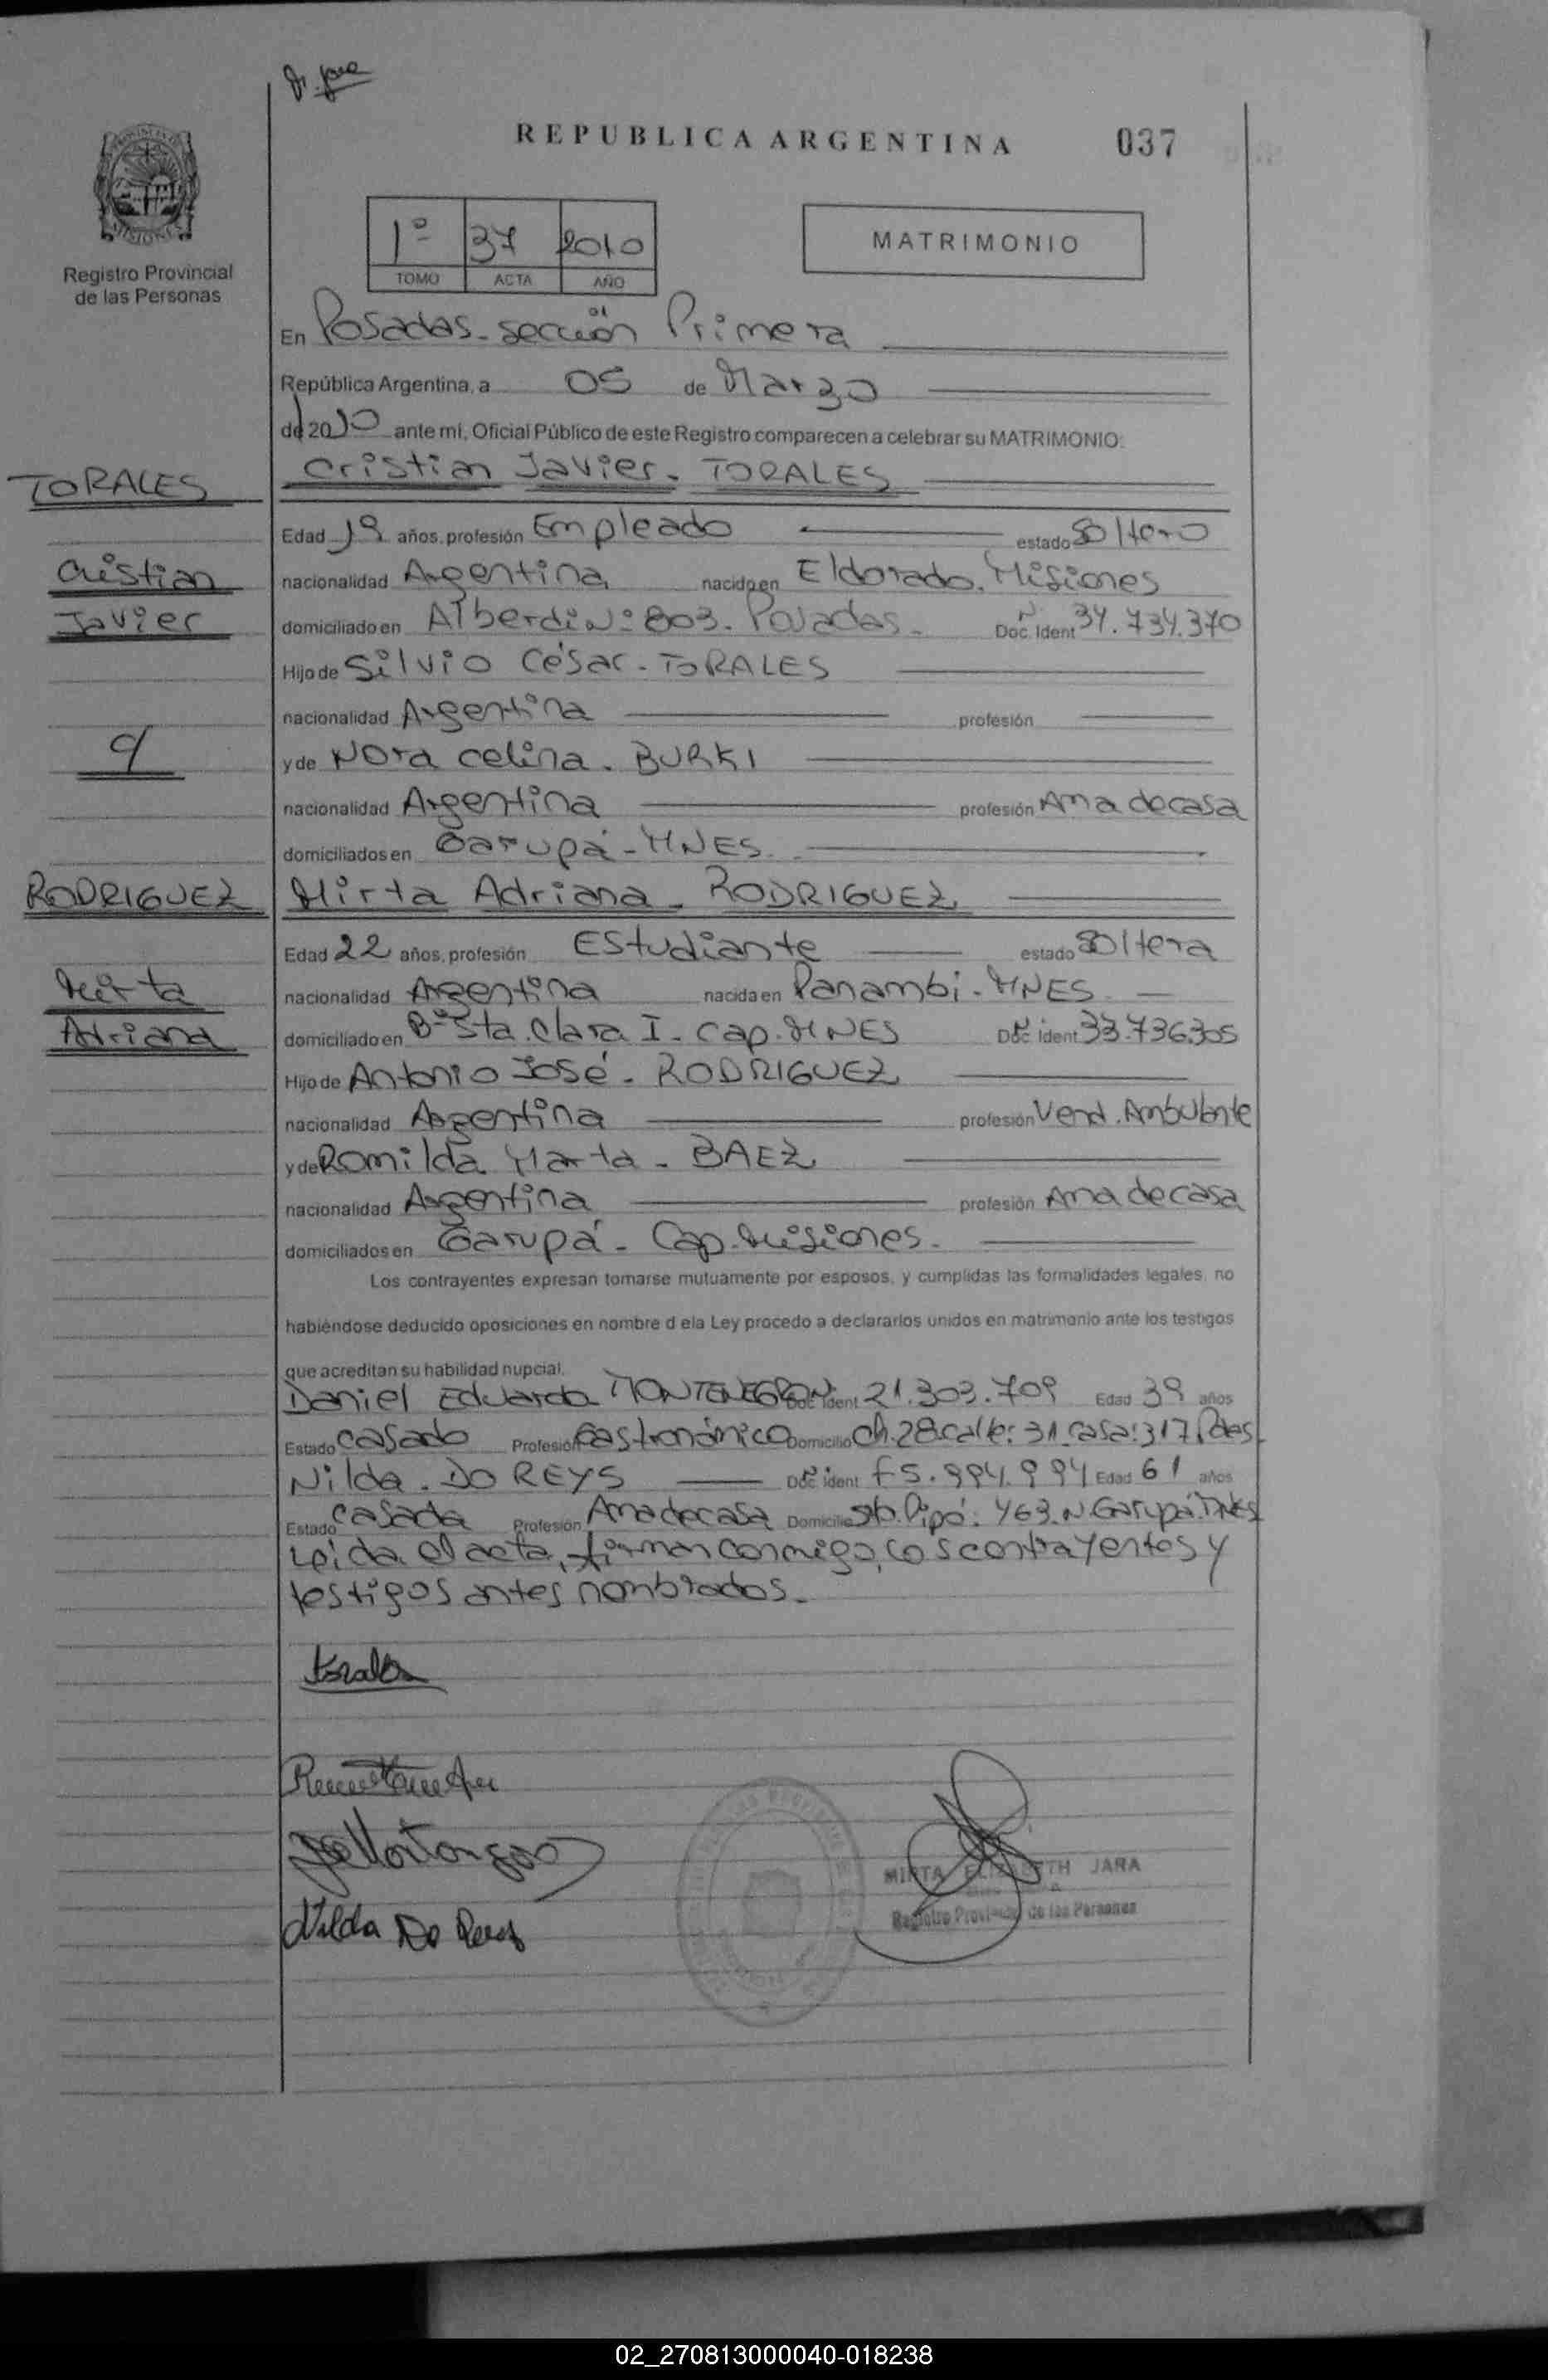 REPUBLICA ARGENTINA 037
MISIONES
Registro Provincial
de las Personas
1º 37 2010
TOMO ACTA AÑO
MATRIMONIO
En Posadas - sección Primera
República Argentina, a 05 de Marzo
de 2010 ante mi, Oficial Público de este Registro comparecen a celebrar su MATRIMONIO:
TORALES
Cristian Javier - TORALES
Edad 19 años, profesión Empleado estado Soltero
Cristian
nacionalidad Argentina nacido en Eldorado. Misiones
Javier
domiciliado en Alberdi Nº 803. Posadas - Doc. Ident N 34.734.370
Hijo de Silvio César - TORALES
nacionalidad Argentina profesión
y
y de Nora Celina. BURKI
nacionalidad Argentina profesión Ama de casa
domiciliados en Garupá - MNES
RODRIGUEZ
Mirta Adriana - RODRIGUEZ
Edad 22 años, profesión Estudiante estado Soltera
Mirta
nacionalidad Argentina nacida en Panambi - MNES
Adriana
domiciliado en Bº Sta. Clara I - Cap. MNES Doc. ident N 33.736.305
Hijo de Antonio José - RODRIGUEZ
nacionalidad Argentina profesión Vend. Ambulante
y de Romilda Marta - BAEZ
nacionalidad Argentina profesión Ama de casa
domiciliados en Garupá - Cap. Misiones.
Los contrayentes expresan tomarse mutuamente por esposos, y cumplidas las formalidades legales, no
habiéndose deducido oposiciones en nombre d ela Ley procedo a declararlos unidos en matrimonio ante los testigos
que acreditan su habilidad nupcial.
Daniel Eduardo MONTENEGRO N Doc. ident 21.303.709 Edad 39 años
Estado Casado Profesión Gastronómico Domicilio Ch. 28 calle: 31 casa: 317 Pdas.
Nilda. DO REYS Doc. ident N F5.994.994 Edad 61 años
Estado Casada Profesión Ama de casa Domicilio Pipó: 463 N. Garupá MNES
Leída el acta, firman conmigo, los contrayentes y
testigos antes nombrados.
Nilda Do Reys
MIRTA ELIZABETH JARA
Registro Provincial de las Personas
02_270813000040-018238